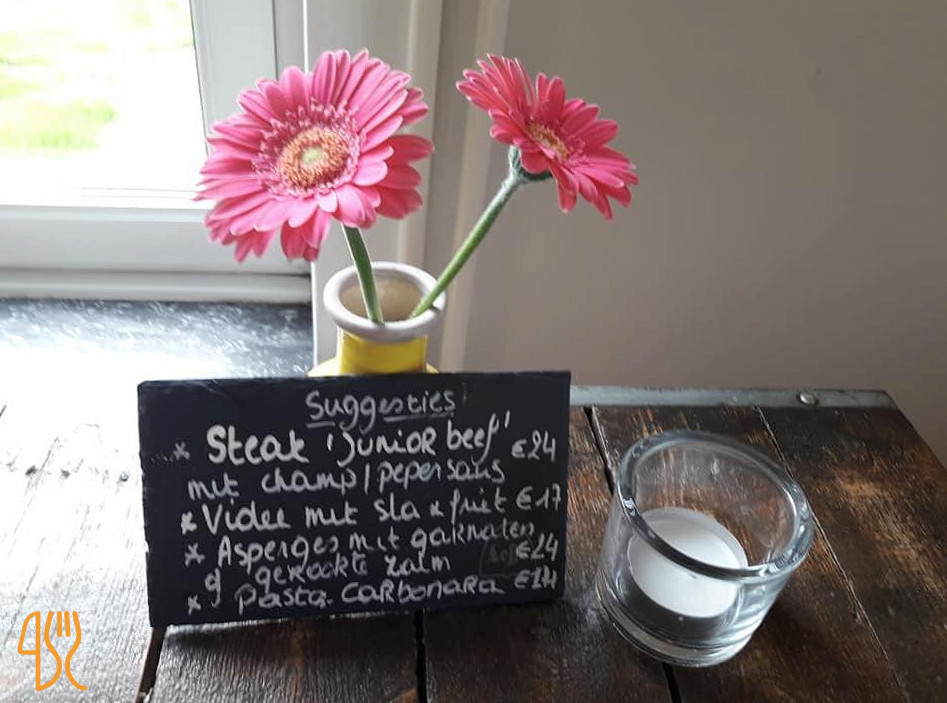 Suggesties
* Steak 'Junior beef' €24
met champ/pepersaus
* Videe met sla & friet €17
* Asperges met garnalen
of gerookte zalm €24
* pasta Carbonara €14